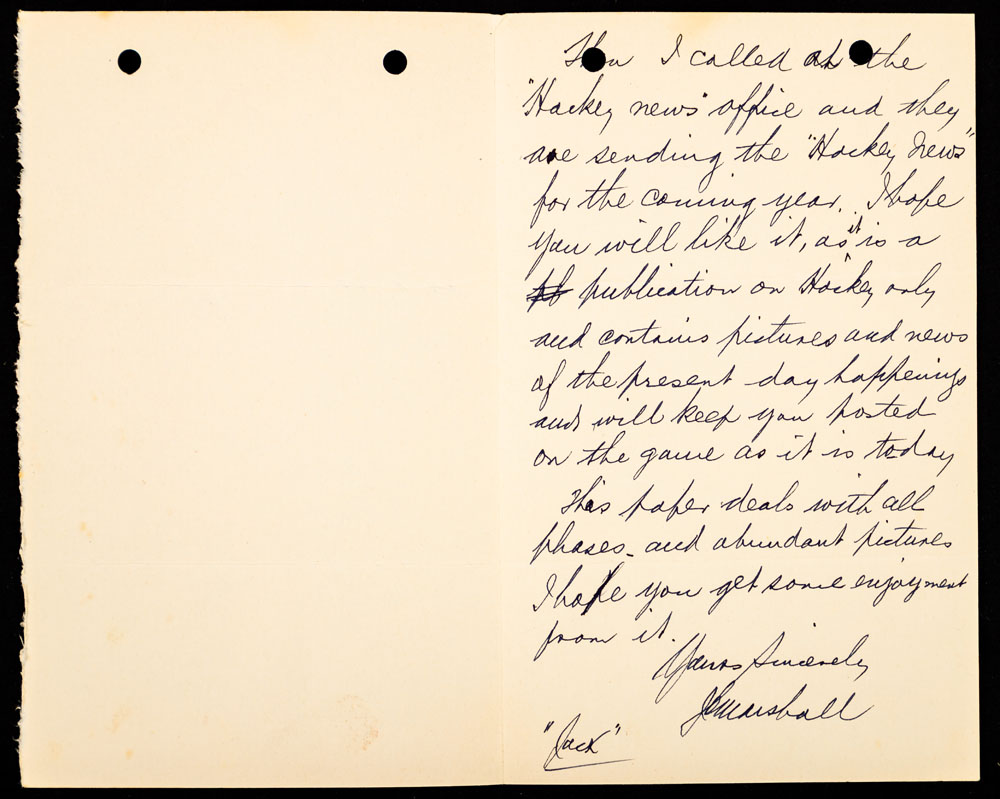 Then I called at the
"Hockey news" office and they
are sending the "Hockey News"
for the coming year. I hope
you will like it, as it is a
pb publication on Hockey only
and contains pictures and news
of the present day happenings
and will keep you posted
on the game as it is today
This paper deals with all
phases - and abundant pictures
I hope you get some enjoyment
from it.
Yours Sincerely
JC Marshall
"Jack"